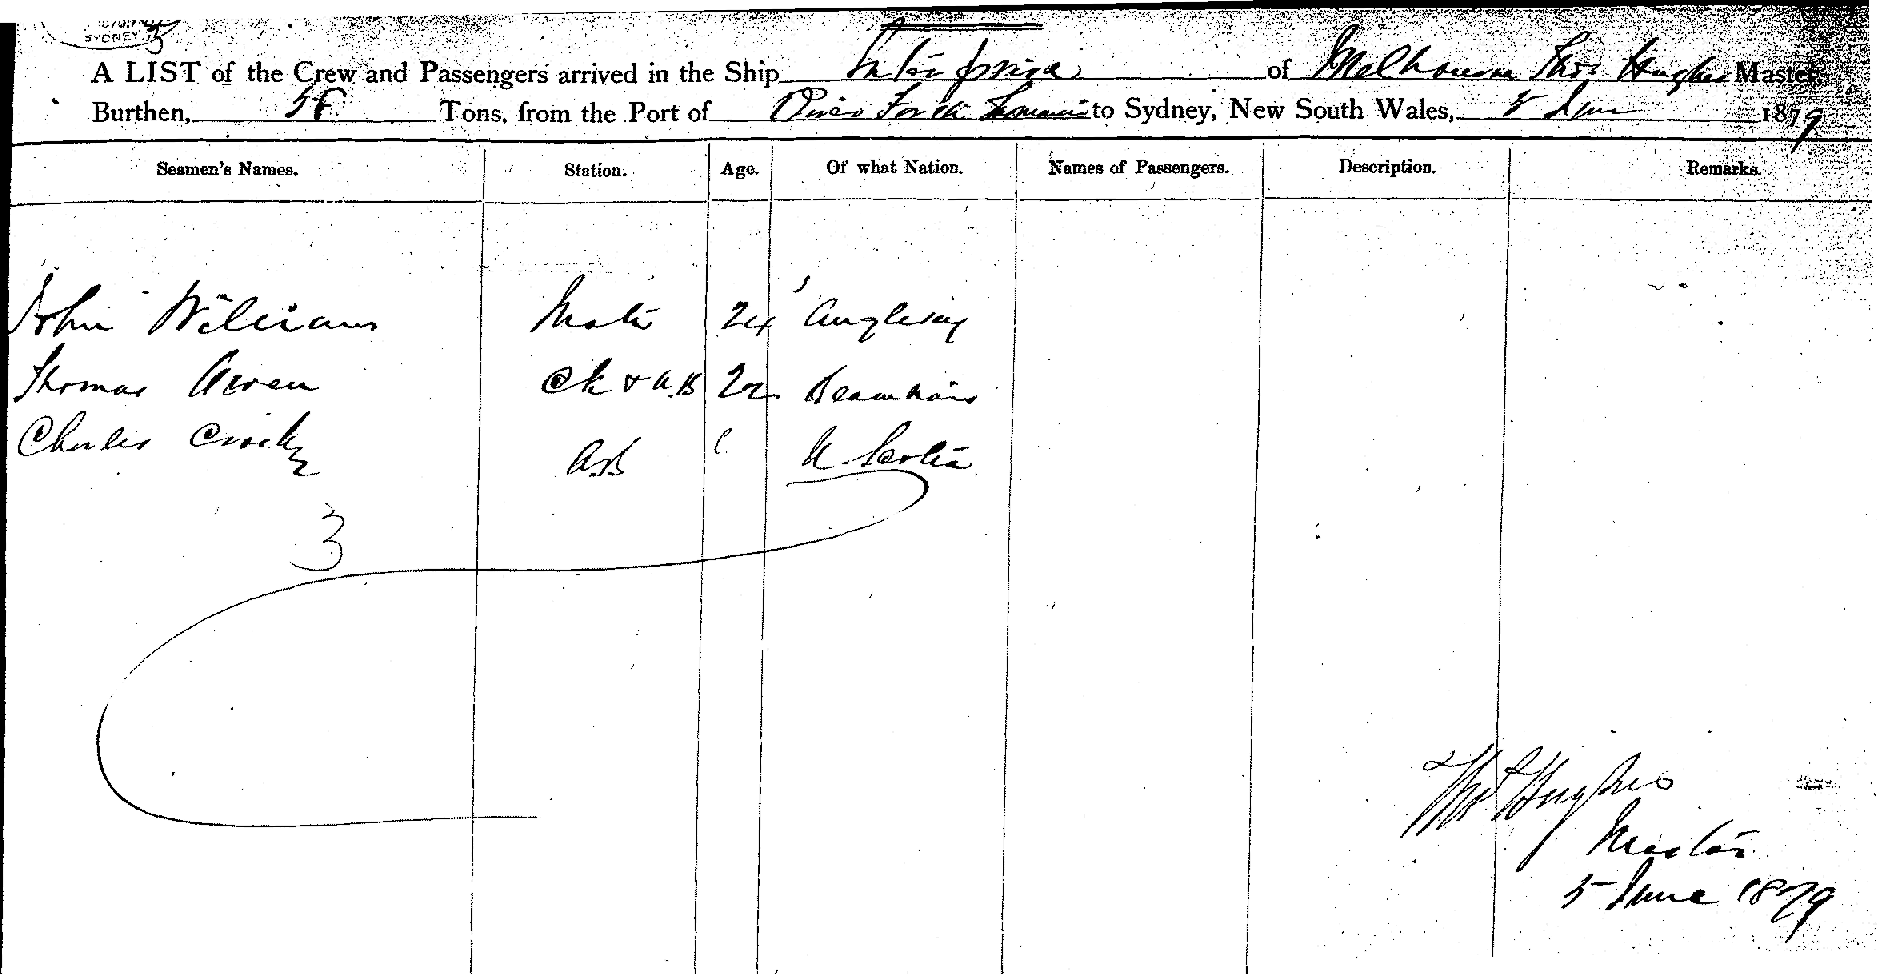 SYDNEY
3
A LIST of the Crew and Passengers arrived in the Ship Enterprise of Melbourne Thos Hughes Master
Burthen, 58 Tons, from the Port of River Forth to Sydney, New South Wales, 5 June 1879
Seamen's Names. Station. Age. Of what Nation. Names of Passengers. Description. Remarks.
John Williams Mate 24 Anglesey
Thomas Owen Ck & A.B 22 Beaumaris
Charles AB N Scotia
3
Thos Hughes
Master
5 June 1879